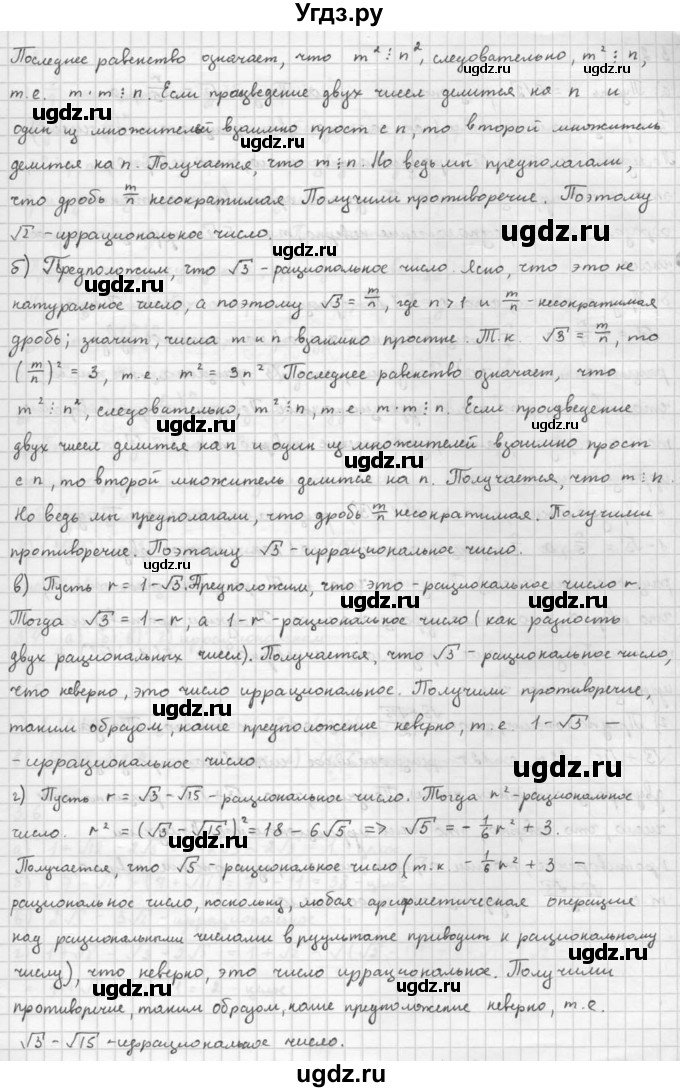 Угдз.ру
Последнее равенство означает, что m² ⋮ n², следовательно, m² ⋮ n,
т.е. m · m ⋮ n. Если произведение двух чисел делится на n и
один из множителей взаимно прост с n, то второй множитель
делится на n. Получается, что m ⋮ n. Но ведь мы предполагали,
что дробь m/n несократимая Получили противоречие. Поэтому
√2 - иррациональное число.
б) Предположим, что √3 - рациональное число. Ясно, что это не
натуральное число, а поэтому √3 = m/n, где n > 1 и m/n - несократимая
дробь; значит, числа m и n взаимно простые. Т.к. √3 = m/n, то
(m/n)² = 3, т.е. m² = 3n² Последнее равенство означает, что
m² ⋮ n², следовательно, m² ⋮ n, т.е. m · m ⋮ n. Если произведение
двух чисел делится на n и один из множителей взаимно прост
с n, то второй множитель делится на n. Получается, что m ⋮ n.
Но ведь мы предполагали, что дробь m/n несократимая. Получили
противоречие. Поэтому √3 - иррациональное число.
в) Пусть r = 1 - √3. Предположим, что это - рациональное число r.
Тогда √3 = 1 - r, а 1 - r - рациональное число (как разность
двух рациональных чисел). Получается, что √3 - рациональное число,
что неверно, это число иррациональное. Получили противоречие,
таким образом, наше предположение неверно, т.е. 1 - √3 -
- иррациональное число.
г) Пусть r = √3 - √15 - рациональное число. Тогда r² - рациональное
число. r² = (√3 - √15)² = 18 - 6√5 => √5 = - 1/6 r² + 3.
Получается, что √5 - рациональное число (т.к. - 1/6 r² + 3 -
рациональное число, поскольку, любая арифметическая операция
над рациональными числами в результате приводит к рациональному
числу), что неверно, это число иррациональное. Получили
противоречие, таким образом, наше предположение неверно, т.е.
√3 - √15 - иррациональное число.